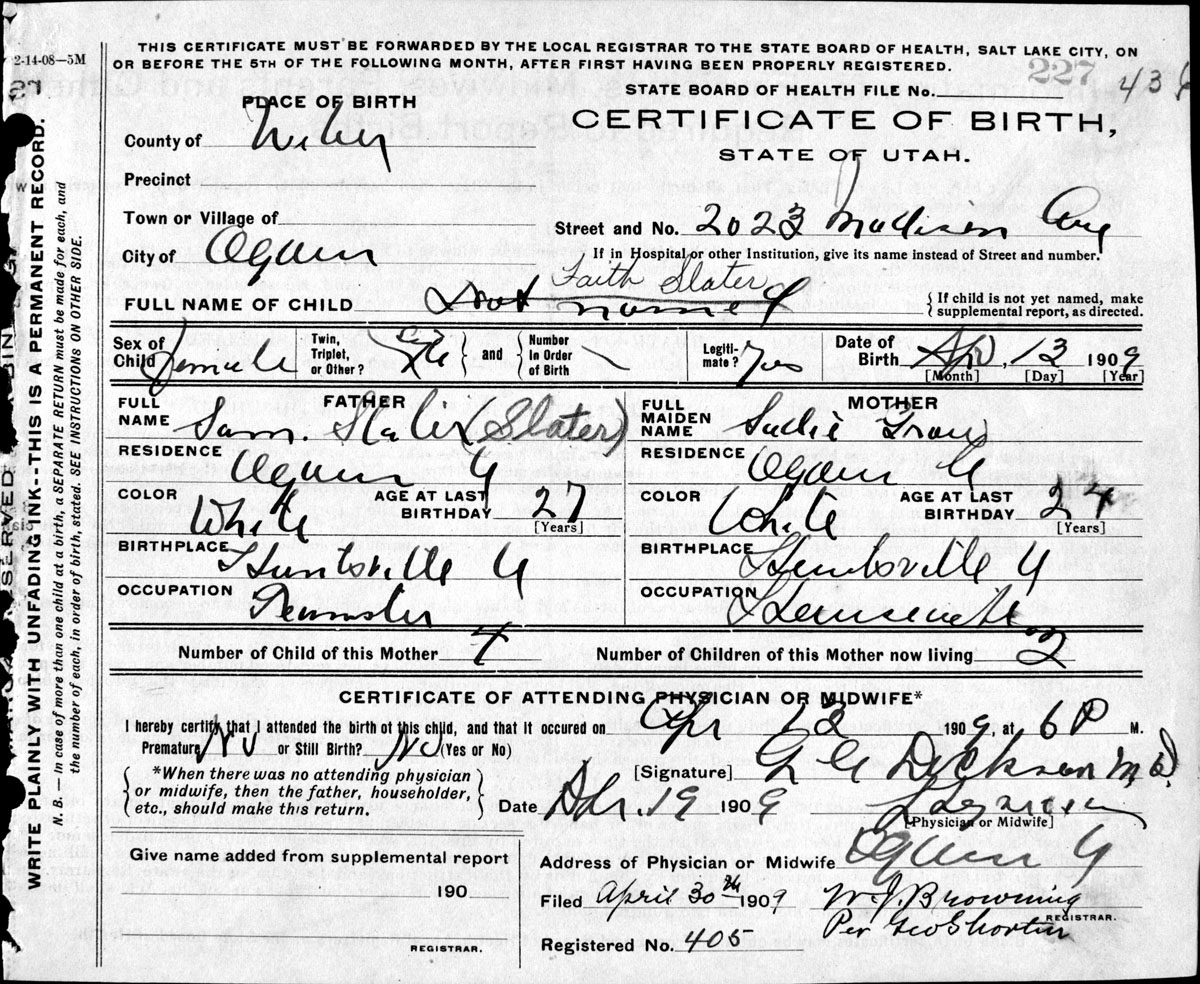 2-14-08—5M
THIS CERTIFICATE MUST BE FORWARDED BY THE LOCAL REGISTRAR TO THE STATE BOARD OF HEALTH, SALT LAKE CITY, ON
OR BEFORE THE 5TH OF THE FOLLOWING MONTH, AFTER FIRST HAVING BEEN PROPERLY REGISTERED.
227
STATE BOARD OF HEALTH FILE No.
436
PLACE OF BIRTH
CERTIFICATE OF BIRTH,
STATE OF UTAH.
County of Weber
Precinct
Town or Village of
Street and No. 2023 Madison Ave
City of Ogden
If in Hospital or other Institution, give its name instead of Street and number.
Faith Slater
FULL NAME OF CHILD Not named
{ If child is not yet named, make
supplemental report, as directed.
Sex of Child Female
Twin, Triplet, or Other?
and
Number in Order of Birth
Legiti-mate? Yes
Date of Birth Apr, 13 1909
[Month] [Day] [Year]
FATHER
FULL NAME Sam. Slater (Slater)
RESIDENCE Ogden U
COLOR White
AGE AT LAST BIRTHDAY 27
[Years]
BIRTHPLACE Huntsville U
OCCUPATION Teamster
MOTHER
FULL MAIDEN NAME Sadie
RESIDENCE Ogden U
COLOR White
AGE AT LAST BIRTHDAY 24
[Years]
BIRTHPLACE Huntsville U
OCCUPATION Housewife
Number of Child of this Mother 4
Number of Children of this Mother now living 2
CERTIFICATE OF ATTENDING PHYSICIAN OR MIDWIFE*
I hereby certify that I attended the birth of this child, and that it occured on Apr 13 1909, at 6 P M.
Premature No or Still Birth? No (Yes or No)
*When there was no attending physician
or midwife, then the father, householder,
etc., should make this return.
[Signature] Dickson M.D.
Date Apr. 19 1909
[Physician or Midwife]
Give name added from supplemental report
190
REGISTRAR.
Address of Physician or Midwife Ogden U
Filed April 30th 1909 W. J. Browning
REGISTRAR.
Per Geo Shorten
Registered No. 405
WRITE PLAINLY WITH UNFADING INK--THIS IS A PERMANENT RECORD.
N. B. — In case of more than one child at a birth, a SEPARATE RETURN must be made for each, and
the number of each, in order of birth, stated. SEE INSTRUCTIONS ON OTHER SIDE.